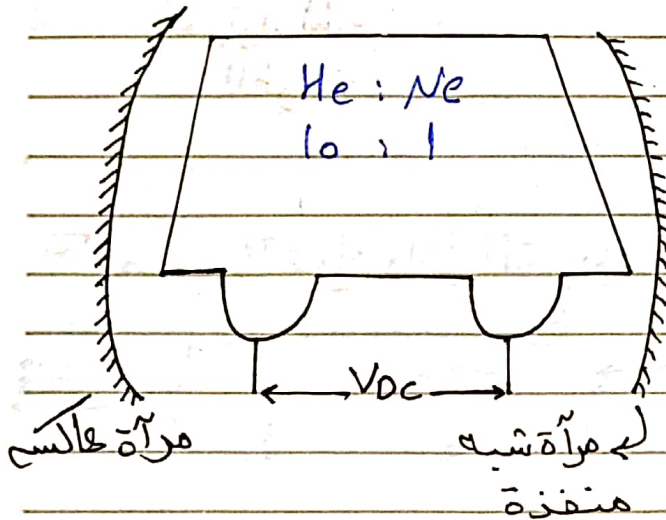 He : Ne
10 : 1
VDC
مرآة عاكسه
مرآة شبه
منفزة